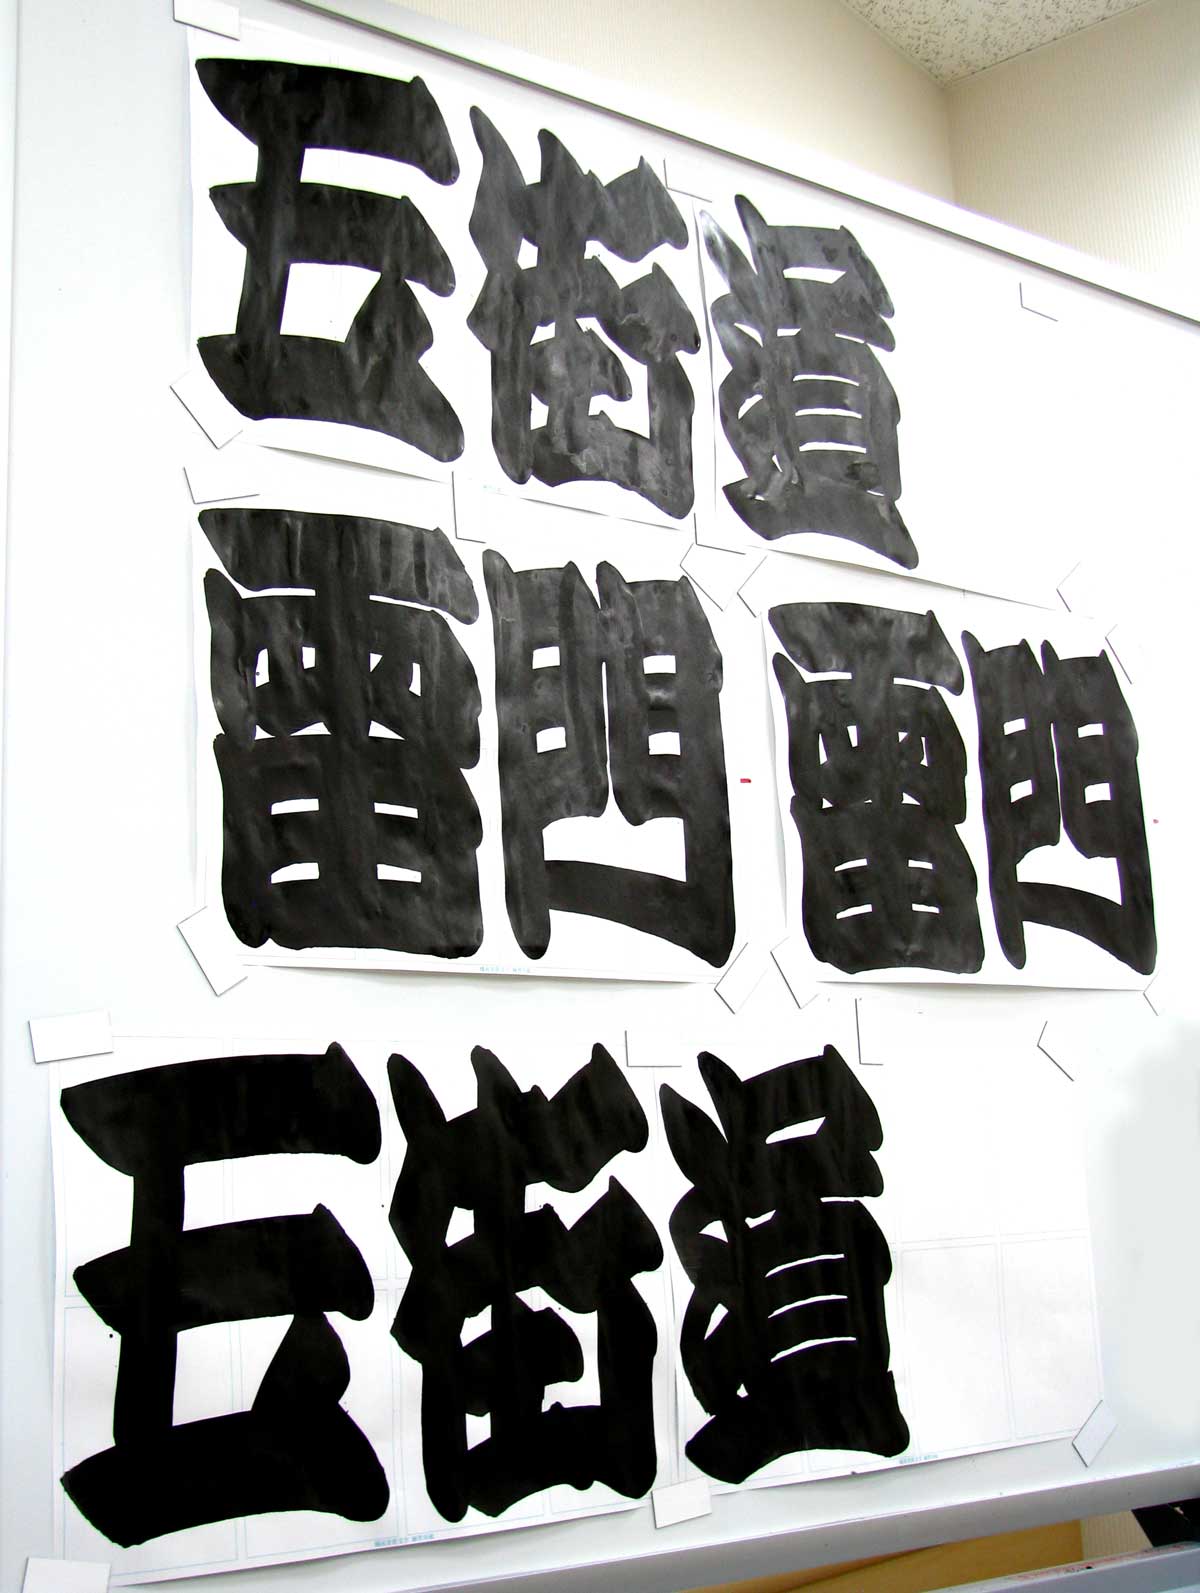 五街道
雷門 雷門
五街道